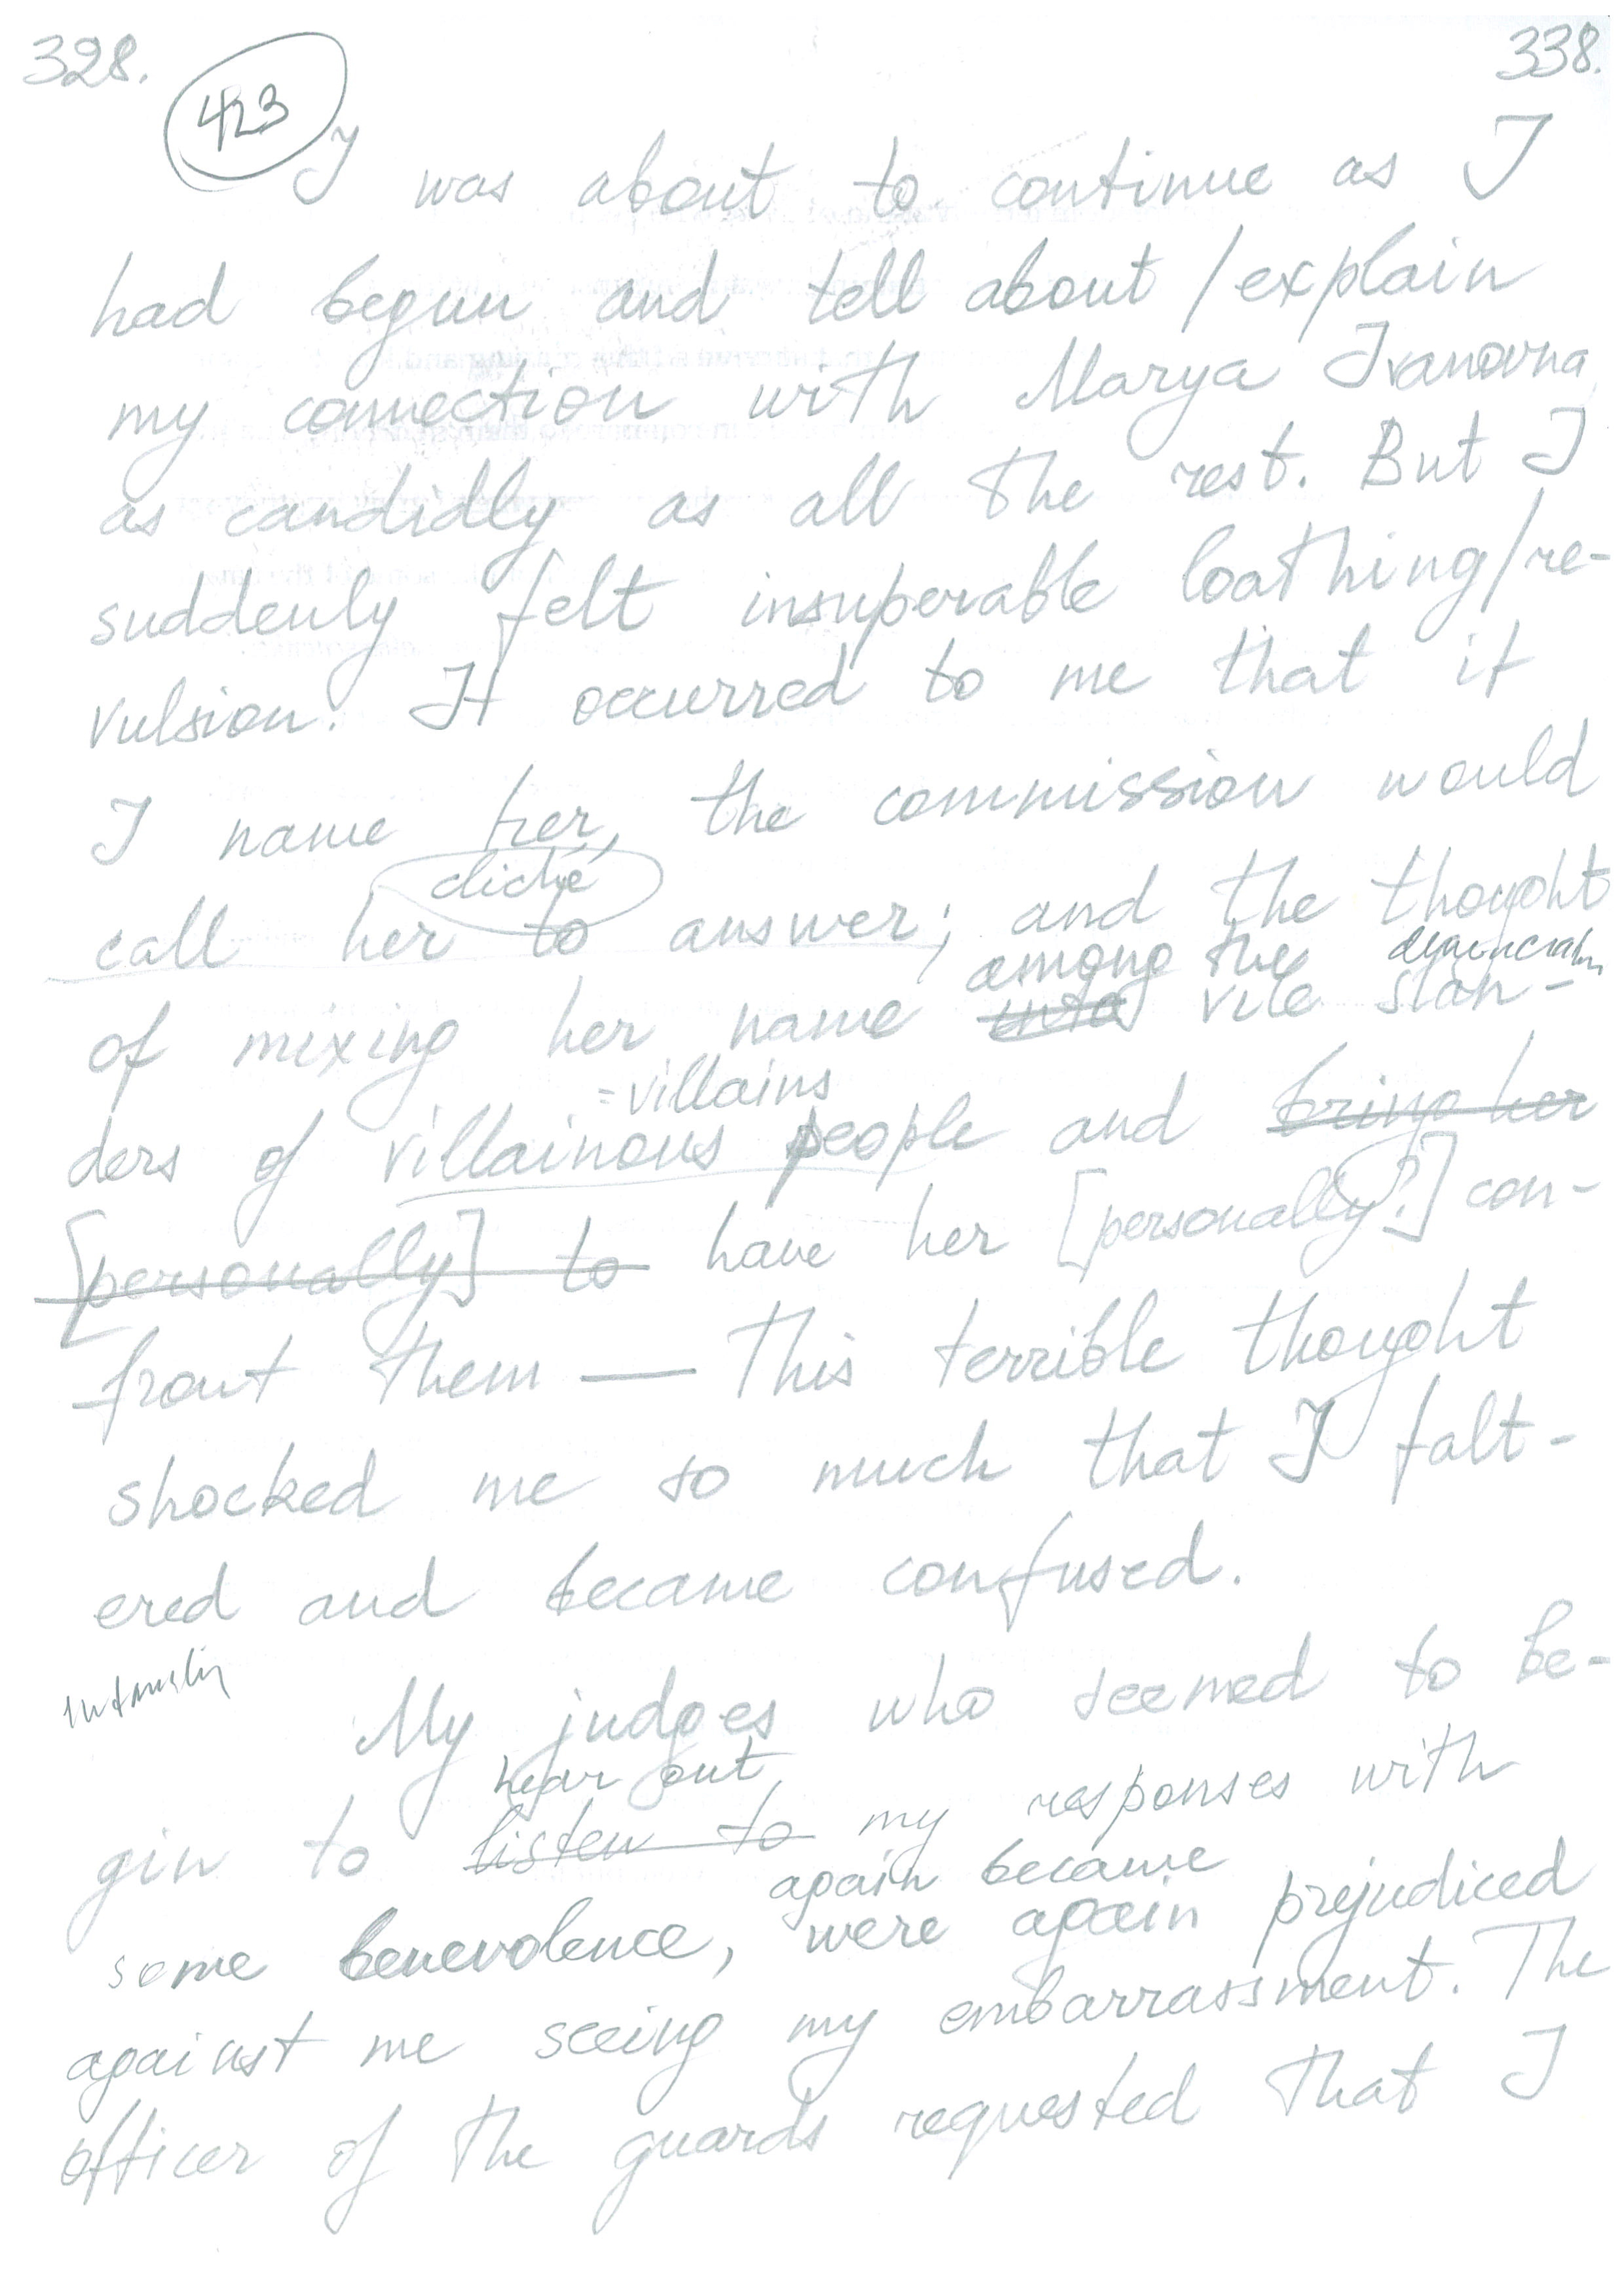 328.
338.
423
I was about to continue as I
had begun and tell about / explain
my connection with Marya Ivanovna
as candidly as all the rest. But I
suddenly felt insuperable loathing/re-
vulsion. It occurred to me that if
I name her, the commission would
cliché
call her to answer; and the thought
among the
of mixing her name into vile slan-
= villains
ders of villainous people and bring her
[personally] to have her [personally?] con-
front them — This terrible thought
shocked me so much that I falt-
ered and became confused.
My judges who seemed to be-
hear out
gin to listen to my responses with
again became
some benevolence, were again prejudiced
against me seeing my embarrassment. The
officer of the guards requested that I